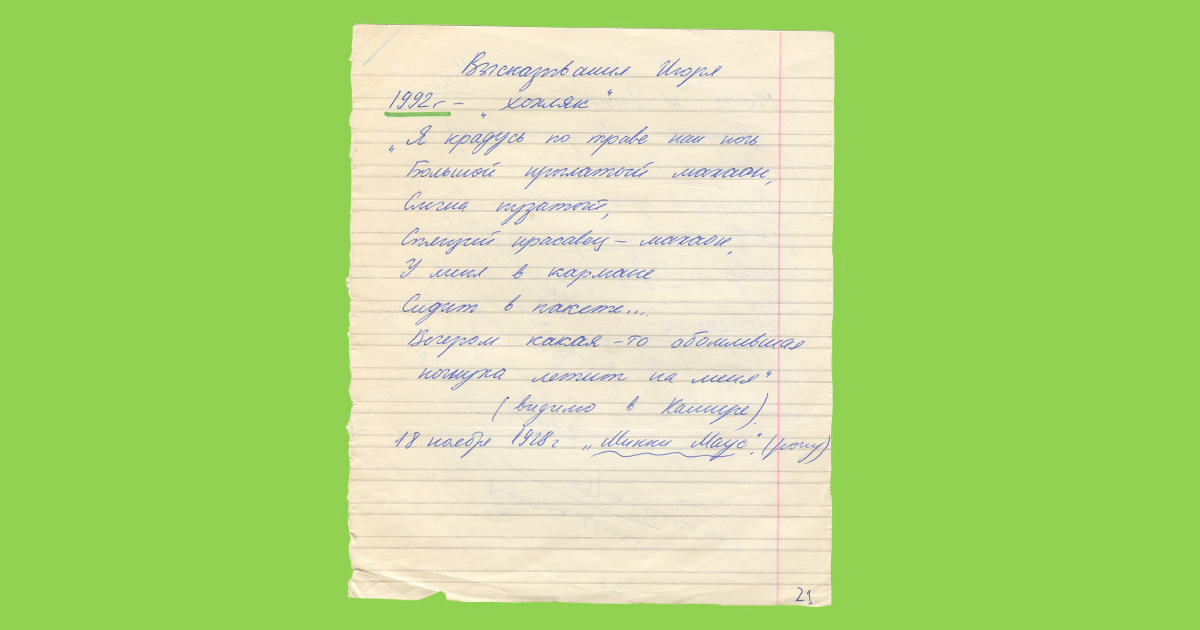 Высказывания Игоря
1992г – „хомяк"
„Я крадусь по траве как ночь
Большой крылатый махаон,
Слегка пузатый,
Спящий красавец – махаон,
У меня в кармане
Сидит в пакете...
Вечером какая-то обомлевшая
ночнушка летит на меня"
(видимо в Кашире)
18 ноября 1928г „Микки Маус".
21